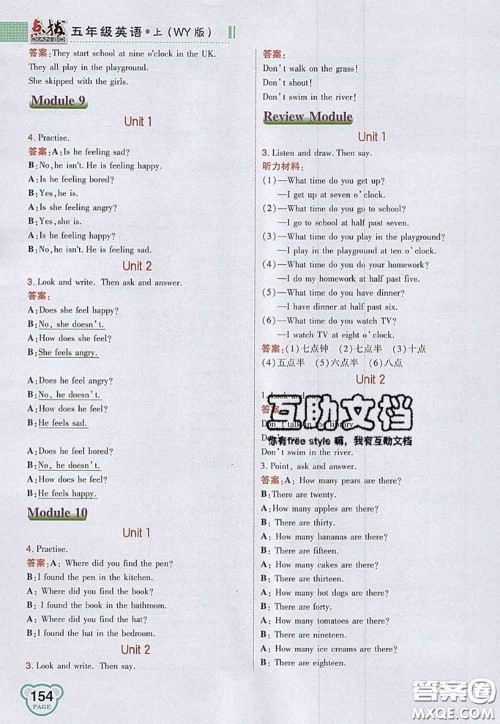 点拨 五年级英语•上(WY版)
DIAN BO
答案:They start school at nine o'clock in the UK.
They all play in the playground.
She skipped with the girls.
Module 9
Unit 1
4. Practise.
答案:A: Is he feeling sad?
B: No, he isn't. He is feeling happy.
A: Is he feeling bored?
B: Yes, he is.
A: Is she feeling angry?
B: Yes, she is.
A: Is he feeling happy?
B: No, he isn't. He is feeling sad.
Unit 2
3. Look and write. Then ask and answer.
答案:
A: Does she feel happy?
B: No, she doesn't.
A: How does she feel?
B: She feels angry.
A: Does he feel angry?
B: No, he doesn't.
A: How does he feel?
B: He feels sad.
A: Does he feel bored?
B: No, he doesn't.
A: How does he feel?
B: He feels happy.
Module 10
Unit 1
4. Practise.
答案:A: Where did you find the pen?
B: I found the pen in the kitchen.
A: Where did you find the book?
B: I found the book in the bathroom.
A: Where did you find the hat?
B: I found the hat in the bedroom.
Unit 2
3. Look and write. Then say.
154
PAGE
答案:
Don't walk on the grass!
Don't shout!
Don't swim in the river!
Review Module
Unit 1
3. Listen and draw. Then say.
听力材料:
(1)—What time do you get up?
—I get up at seven o'clock.
(2)—What time do you go to school?
—I go to school at half past seven.
(3)—What time do you play in the playground?
—I play in the playground at ten o'clock.
(4)—What time do you do your homework?
—I do my homework at half past five.
(5)—What time do you have dinner?
—I have dinner at half past six.
(6)—What time do you watch TV?
—I watch TV at eight o'clock.
答案:(1)七点钟 (2)七点半 (3)十点
(4)五点半 (5)六点半 (6)八点
Unit 2
答案
Don't talk in the library
互助文档
你有free style 嘛,我有互助文档
Don't swim in the river.
3. Point, ask and answer.
答案:A: How many pears are there?
B: There are twenty.
A: How many bananas are there?
B: There are thirty.
A: How many apples are there?
B: There are fifteen.
A: How many cakes are there?
B: There are thirteen.
A: How many hot dogs are there?
B: There are forty.
A: How many peaches are there?
B: There are nineteen.
A: How many oranges are there?
B: There are fourteen.
答案圈
MXQE.COM